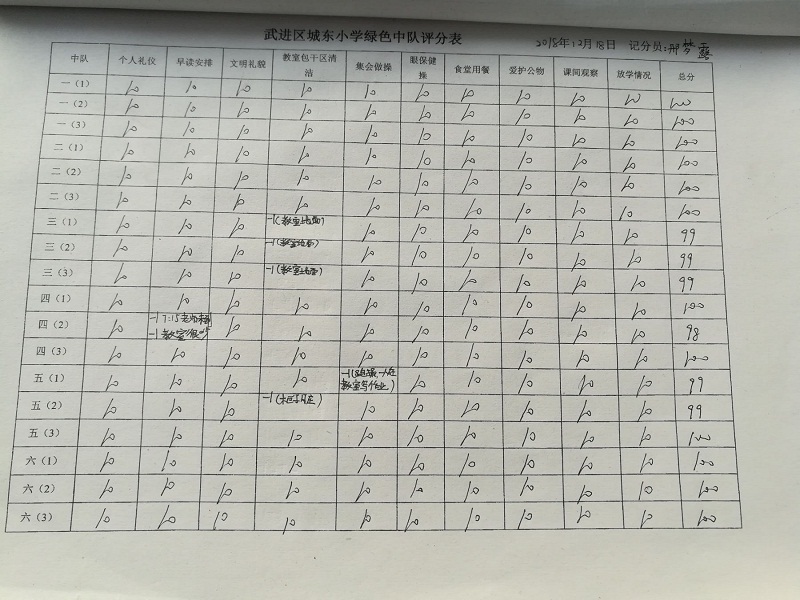 武进区城东小学绿色中队评分表 2018年12月18日 记分员:邢梦露
中队 个人礼仪 早读安排 文明礼貌 教室包干区清洁 集会做操 眼保健操 食堂用餐 爱护公物 课间观察 放学情况 总分
一(1) 10 10 10 10 10 10 10 10 10 10 100
一(2) 10 10 10 10 10 10 10 10 10 10 100
一(3) 10 10 10 10 10 10 10 10 10 10 100
二(1) 10 10 10 10 10 10 10 10 10 10 100
二(2) 10 10 10 10 10 10 10 10 10 10 100
二(3) 10 10 10 10 10 10 10 10 10 10 100
三(1) 10 10 10 -1(教室地面) 10 10 10 10 10 10 99
三(2) 10 10 10 -1(教室地面) 10 10 10 10 10 10 99
三(3) 10 10 10 -1(教室地面) 10 10 10 10 10 10 99
四(1) 10 10 10 10 10 10 10 10 10 10 100
四(2) 10 -1 7:15老师未到 -1 教室很吵 10 10 10 10 10 10 10 10 98
四(3) 10 10 10 10 10 10 10 10 10 10 100
五(1) 10 10 10 10 -1( 教室写作业) 10 10 10 10 10 99
五(2) 10 10 10 -1( ) 10 10 10 10 10 10 99
五(3) 10 10 10 10 10 10 10 10 10 10 100
六(1) 10 10 10 10 10 10 10 10 10 10 100
六(2) 10 10 10 10 10 10 10 10 10 10 100
六(3) 10 10 10 10 10 10 10 10 10 10 100